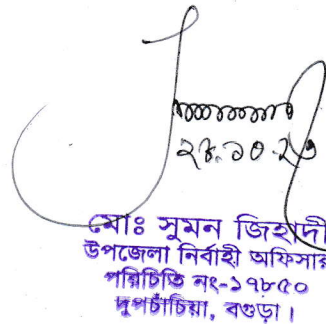 ২৪.১০.২৩
মোঃ সুমন জিহাদী
উপজেলা নির্বাহী অফিসার
পরিচিতি নং-১৭৮৫০
দুপচাঁচিয়া, বগুড়া।